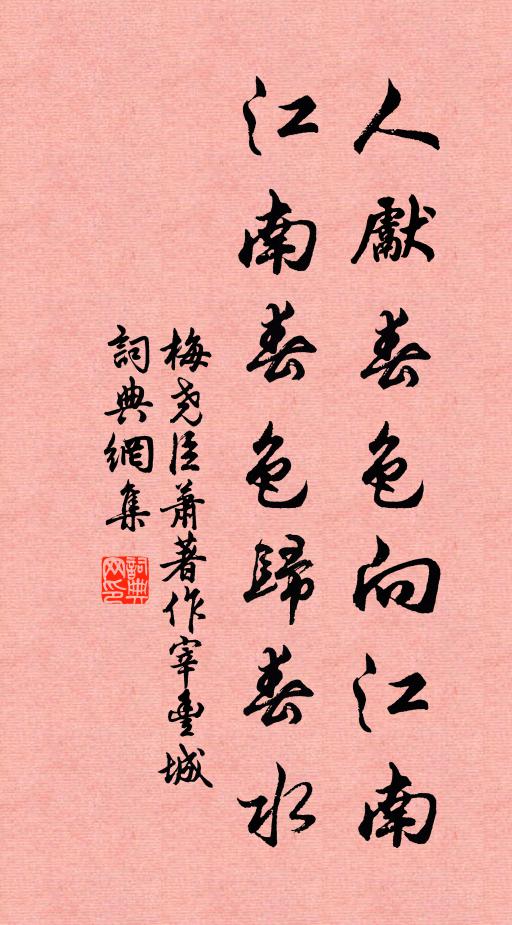 人獻春色向江南
江南春色歸春水
梅堯臣蕭著作宰豐城
詞典網集
詞典
网印